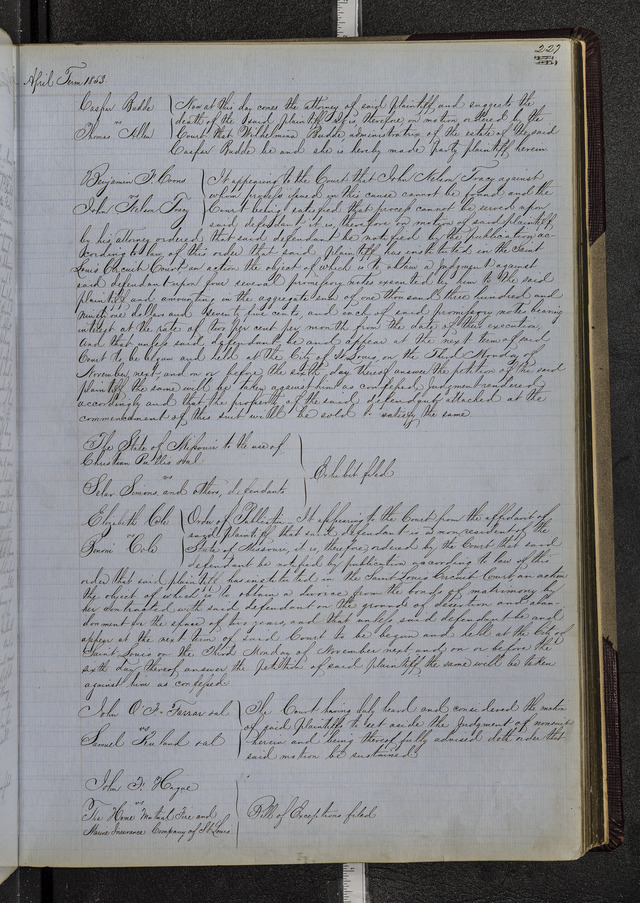 227
April Term 1853
Casper Budde } Now at this day comes the attorney of said Plaintiff and suggests the
vs death of the said plaintiff, it is, therefore, on motion ordered by the
Thomas Allen Court that Wilhelmina Budde administratrix of the estate of the said
Casper Budde be and she is hereby made party plaintiff herein
Benjamin F. } It appearing to the Court that John Nelson Tracy against
whom process issued in this cause cannot be found and the
vs Court being satisfied that process cannot be served upon
John Nelson Tracy said defendant it is, therefore on motion of said plaintiff
by his attorney ordered that said defendant be notified by the publication ac-
cording to law of this order that said plaintiff has instituted in the Saint
Louis Circuit Court, an action the object of which is to obtain a judgment against
said defendant upon four several promissory notes executed by him to the said
plaintiff and amounting in the aggregate sum of one thousand three hundred and
ninety one dollars and seventy five cents, and each of said promissory notes bearing
interest at the rate of two per cent per month from the date of their execution,
and that unless said defendant be and appear at the next term of said
Court to be begun and held at the City of St Louis, on the Third Monday of
November next, and on or before the sixth day thereof answer the petition of the said
plaintiff, the same will be taken against him as confessed, judgment rendered
accordingly and that the property of the said defendant attached at the
commencement of this suit will be sold to satisfy the same
The State of Missouri to the use of
Christian et al
vs } Exhibit filed
Peter Simons and others, defendants
Elizabeth Cole } Order of Publication. It appearing to the Court from the affidavit of
said plaintiff that said defendant is a non resident of the
vs State of Missouri, it is, therefore ordered by the Court that said
Cole defendant be notified by publication according to law of this
order that said plaintiff has instituted in the Saint Louis Circuit Court an action
the object of which is to obtain a divorce from the bonds of matrimony by
her contracted with said defendant on the grounds of desertion and aban-
donment for the space of two years, and that unless said defendant be and
appear at the next term of said Court to be begun and held at the City of
Saint Louis on the Third Monday of November next and on or before the
sixth day thereof answer the petition of said plaintiff, the same will be taken
against him as confessed
John O'F. Farrar et al } The Court having duly heard and considered the motion
of said Plaintiffs to set aside the Judgment of nonsuit
vs herein and being thereof fully advised doth order that
Samuel et al said motion be sustained
John F. Hague
vs
The Home Mutual Fire and } Bill of Exceptions filed
Marine Insurance Company of St Louis